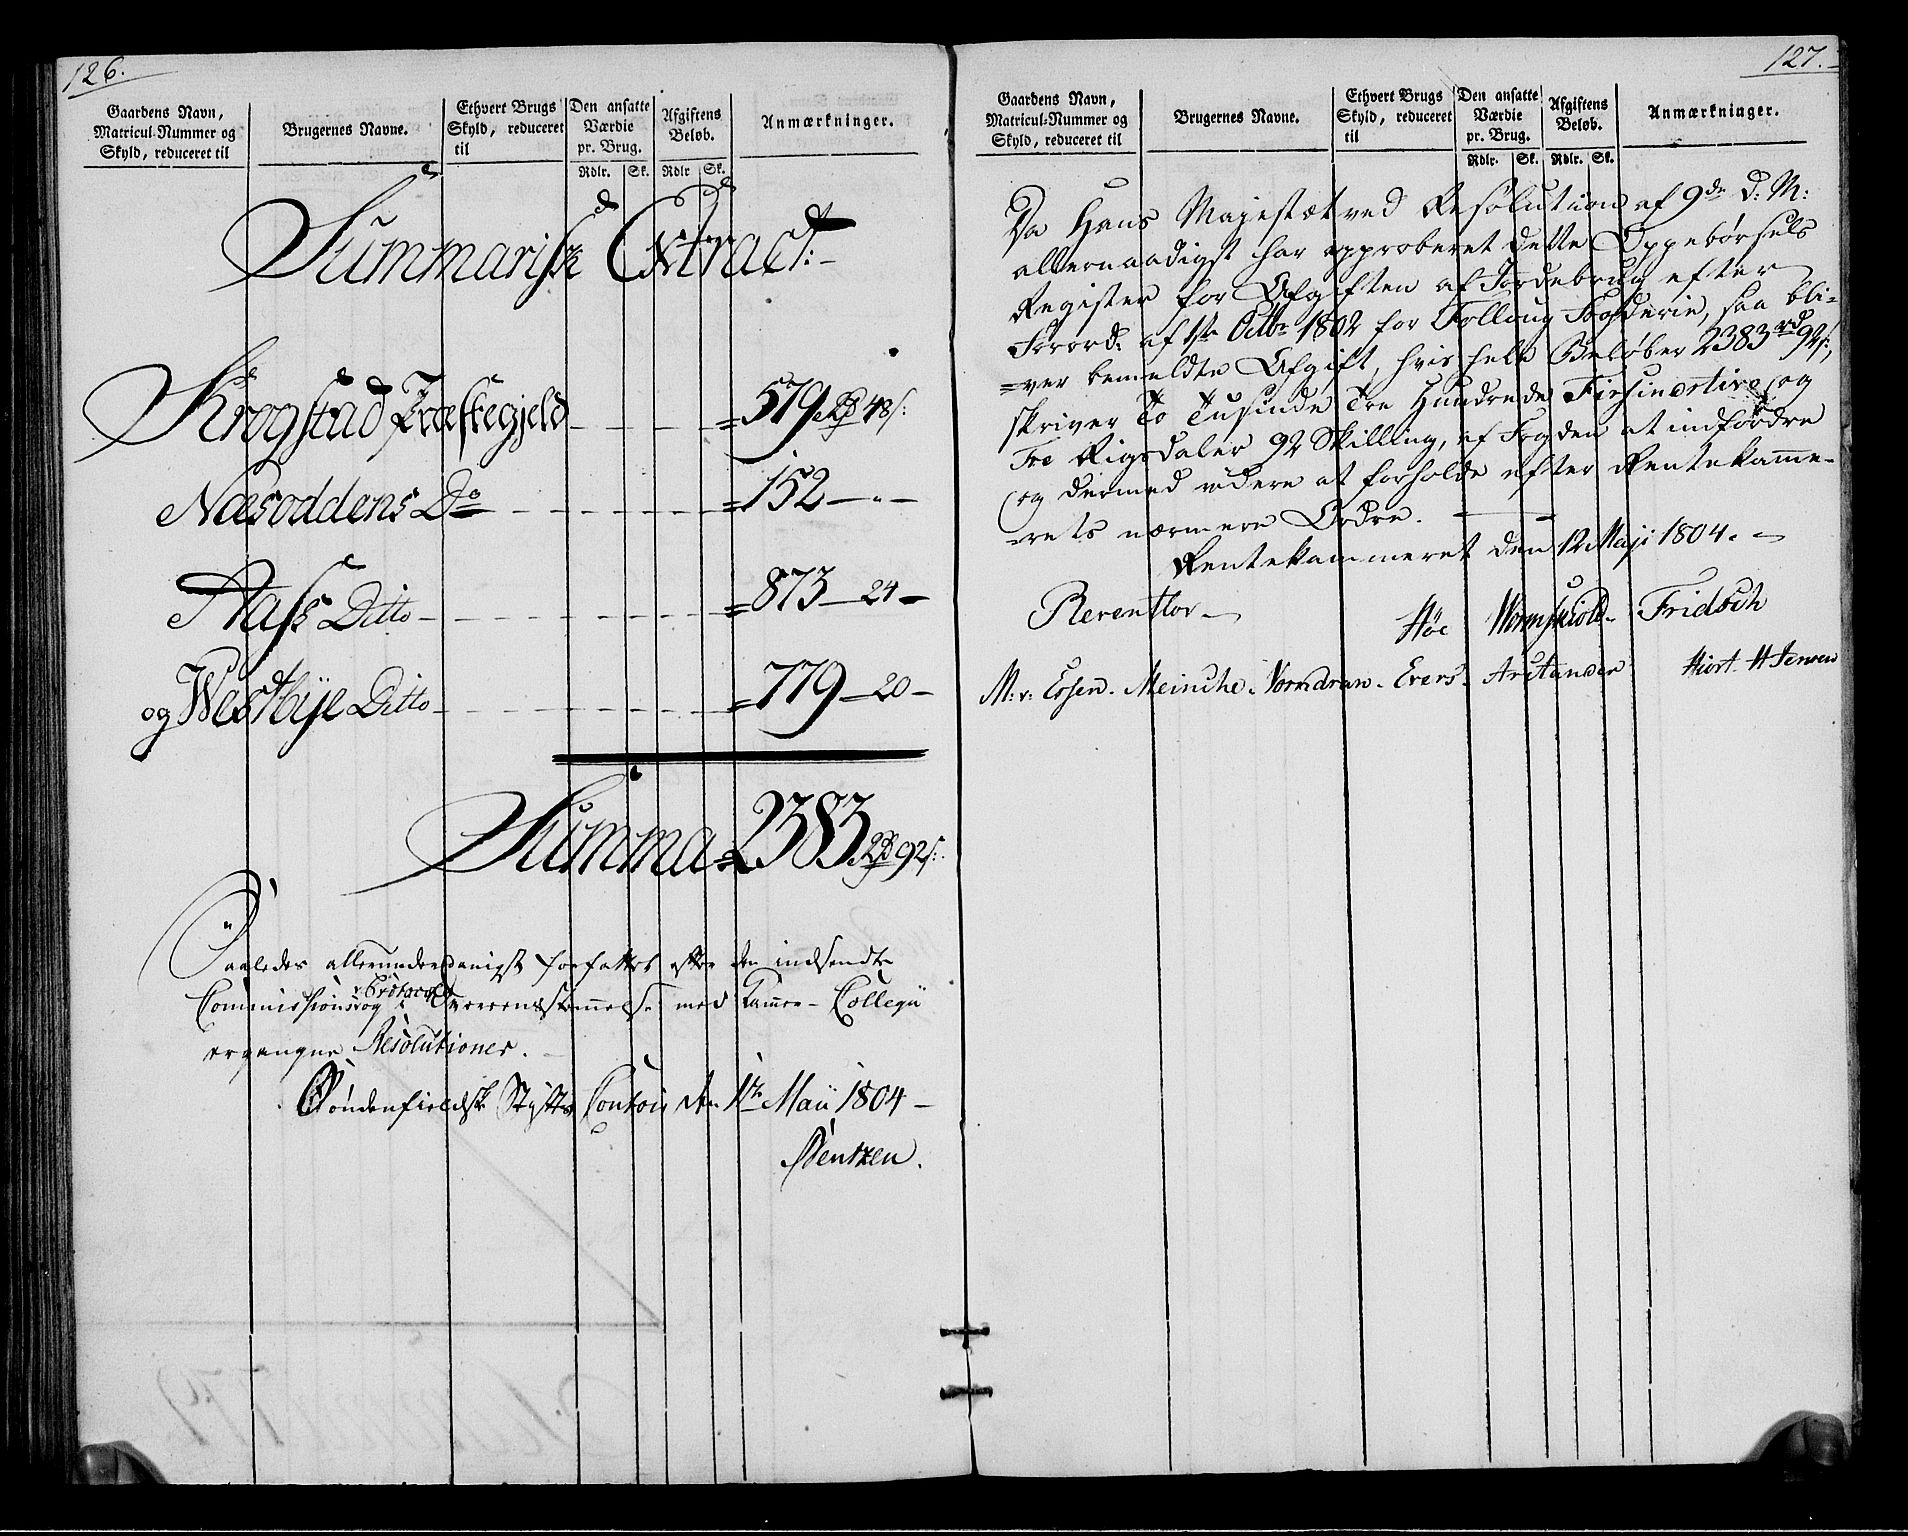 126.
Gaardens Navn,
Matricul-Nummer og
Skyld, reduceret til
Brugernes Navne.
Ethvert Brugs
Skyld, reduceret
til
Den ansatte
Værdie
pr. Brug.
Rdlr. Sk.
Afgiftens
Beløb.
Rdlr Sk.
Anmærkninger.
Summarisk Extract:
Krogstad Præstegjeld = 579 Rd 48 s:
Næsoddens Do = 152 — " —
Aass Ditto = 873 — 24 —
og Westbye Ditto = 779 — 20 —
Summa = 2383 Rd 92 s:
Saaledes allerunderdanigst forfattet efter den indsendte
Commissions Protocol
og i Overeensstemmelse med Kammer-Collegii
ergangne Resolutioner.
Søndenfieldske Stifts Contoir den 1te Maii 1804 —
Bentzen.
127.
Gaardens Navn,
Matricul-Nummer og
Skyld, reduceret til
Brugernes Navne.
Ethvert Brugs
Skyld, reduceret
til
Den ansatte
Værdie
pr. Brug.
Rdlr. Sk.
Afgiftens
Beløb.
Rdlr. Sk.
Anmærkninger.
Da Hans Majestæt ved Resolution af 9de d: M:
allernaadigst har approberet dette Oppebørsels
Register for Afgiften af Jordebrug efter
Forord: af 1ste Octbr 1802 for Folloug Fogderie, saa bli-
=ver bemeldte Afgift, hvis hele Beløber 2383 rd 92 s:,
skriver To Tusinde Tre Hundrede Firsindstive og
Tre Rigsdaler 92 Skilling, af Fogden at indfordre
og dermed videre at forholde efter Rentekamme-
=rets nærmere Ordre.
Rentekammeret den 12 Maji 1804.
Reventlov Høe Wormskiold Fridsch
M: v: Essen. Meinche. Vormdran. Evers. Arctander Hiort. H Jensen